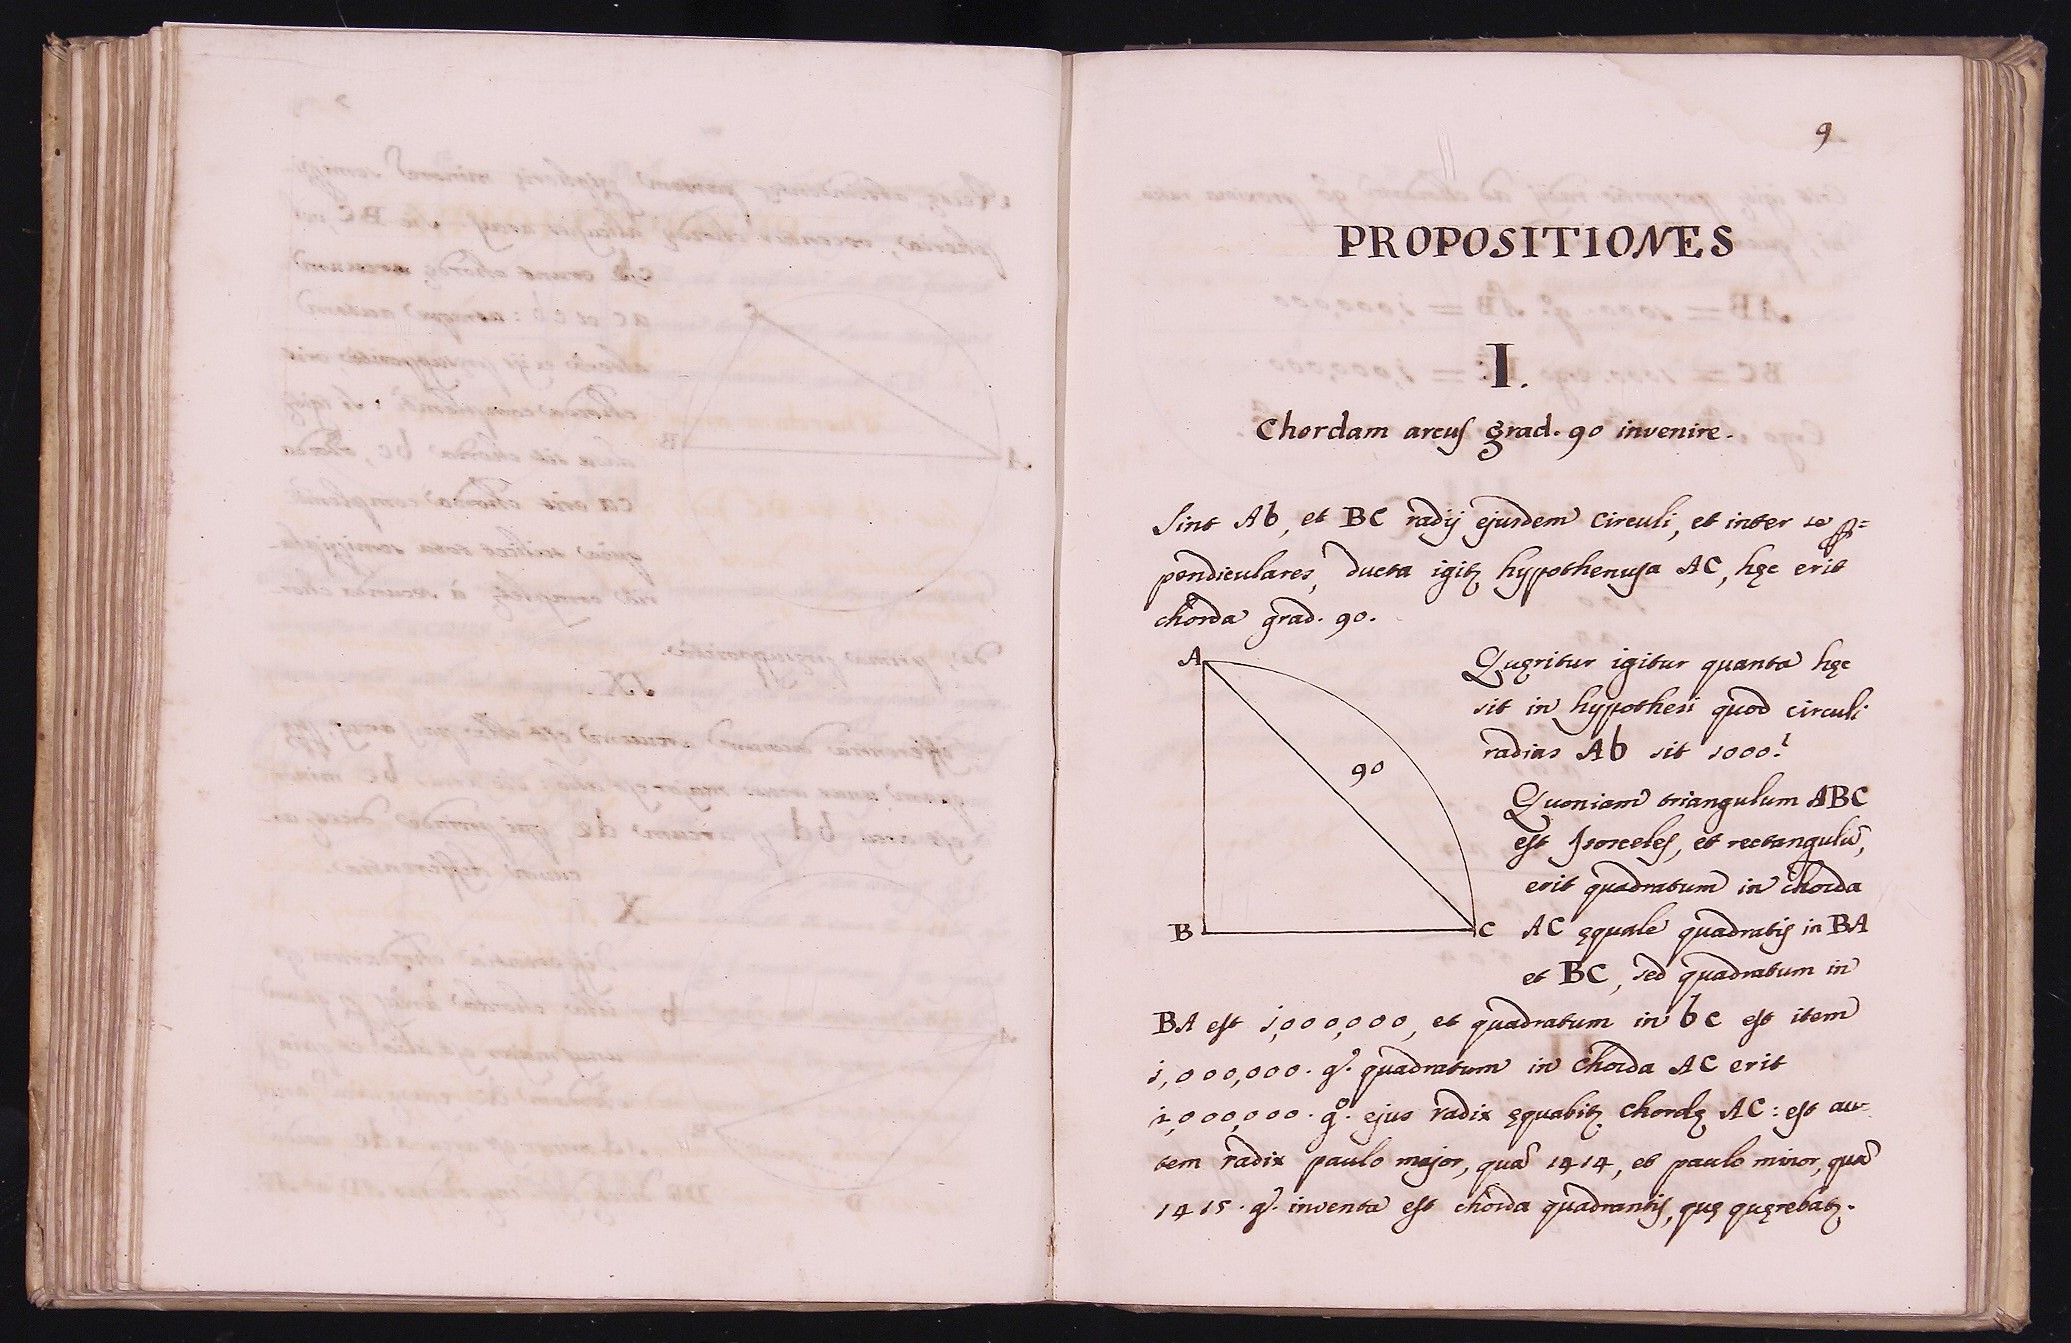 9
PROPOSITIONES
I.
Chordam arcus grad. 90 invenire.
Sint Ab, et BC radij ejusdem circuli, et inter se
pendiculares, ducta igitz hypothenusa AC, hęc erit
chorda grad. 90.
A
Quęritur igitur quanta hęc
sit in hypothesi quod circuli
radius Ab sit 1000?
90
Quoniam triangulum ABC
est Isosceles, et rectangulū,
erit quadratum in chorda
B
C
AC ęquale quadratis in BA
et BC, sed quadratum in
BA est 1,000,000, et quadratum in bc est item
1,000,000. gᵒ. quadratum in chorda AC erit
2,000,000. gᵒ. ejus radix ęquabitz chordę AC: est au-
tem radix paulo major, quā 1414, et paulo minor, quā
1415. gᵒ. inventa est chorda quadrantis, quę quęrebatz.